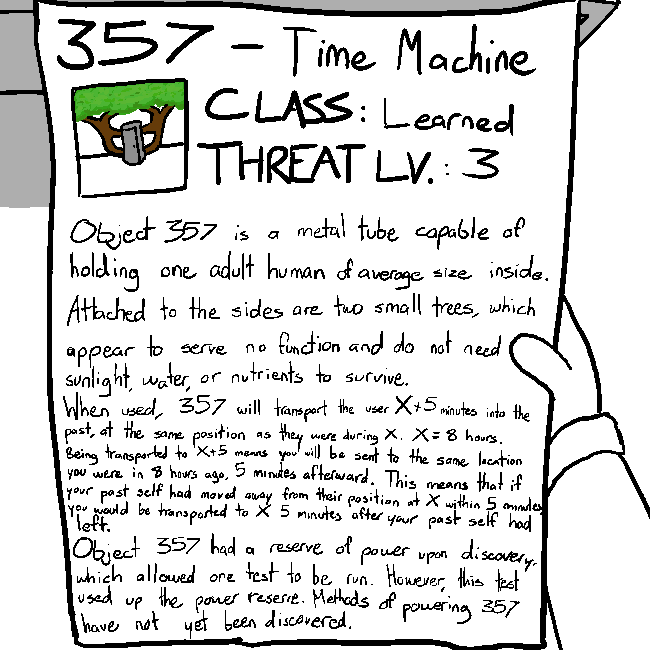 357 - Time Machine
CLASS: Learned
THREAT LV.: 3
Object 357 is a metal tube capable of
holding one adult human of average size inside.
Attached to the sides are two small trees, which
appear to serve no function and do not need
sunlight, water, or nutrients to survive.
When used, 357 will transport the user X+5 minutes into the
past, at the same position as they were during X. X= 8 hours.
Being transported to X+5 means you will be sent to the same location
you were in 8 hours ago, 5 minutes afterward. This means that if
your past self had moved away from their position at X within 5 minutes
you would be transported to X 5 minutes after your past self had
left.
Object 357 had a reserve of power upon discovery,
which allowed one test to be run. However, this test
used up the power reserve. Methods of powering 357
have not yet been discovered.